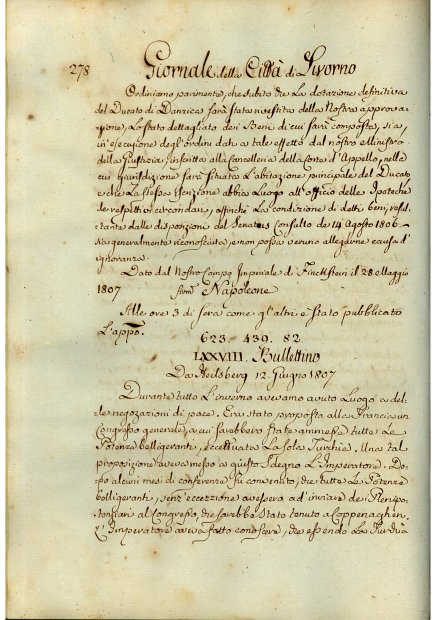 278
Giornale della Città di Livorno
Ordiniamo parimente, che subito che La dotazione definitiva
del Ducato di Danzica sarà stata rivestita della Nostra approva-
zione, Lo stato dettagliato dei Beni di cui sarà composta, sia
in esecuzione degl'ordini dati a tale effetto dal nostro Ministro
della Giustizia inscritta alla Cancelleria della Corte d'Appello, nella
cui giurisdizione sarà situata L'abitazione principale del Ducato
e che La stessa iscrizione abbia Luogo all'officio delle Ipoteche
de respettivi circondari, affinchè La condizione di detti beni, resul-
tante dalle disposizioni del Senatus Consulto de 14 Agosto 1806 -
sia generalmente riconosciuta, e non possa veruno allegarne causa d'
ignoranza.
Dato dal Nostro Campo Imperiale di Finckstein il 28 Maggio
1807 firm.º Napoleone
Alle ore 3 di sera come gl'altri è stato pubblicato
L'app.º
623. 439. 82
LXXVIII. Bullettino
Da Heilsberg 12. Giugno 1807
Durante tutto L'inverno avevamo avuto Luogo a del-
le negoziazioni di pace. Era stato proposto alla Francia un
Congresso generale, a cui sarebbero state ammesse tutte Le
Potenze belligeranti, eccettuata La sola Turchia. Una tal
proposizione aveva messo a giusto sdegno L'Imperatore. Do-
po alcuni mesi di conferenze fu convenuto, che tutte Le Potenze
belligeranti, senz'eccezione avessero ad inviare dei Plenipo-
tenziari al Congresso, che sarebbe stato tenuto a Coppenaghen.
L'Imperatore aveva fatto conoscere, che essendo La Turchia